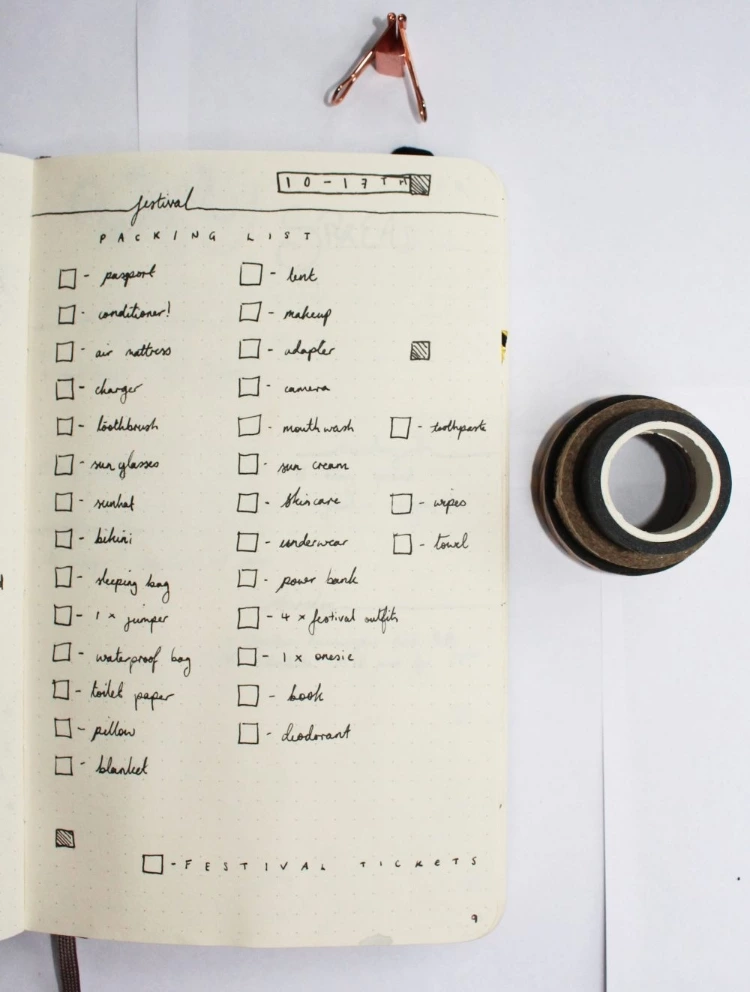 10-17TH
festival
PACKING LIST
- passport
- conditioner!
- air mattress
- charger
- toothbrush
- sunglasses
- sunhat
- bikini
- sleeping bag
- 1 x jumper
- waterproof bag
- toilet paper
- pillow
- blanket
- tent
- makeup
- adapter
- camera
- mouthwash
- sun cream
- skincare
- underwear
- power bank
- 4 x festival outfits
- 1 x onesie
- book
- deodorant
- toothpaste
- wipes
- towel
- FESTIVAL TICKETS
9